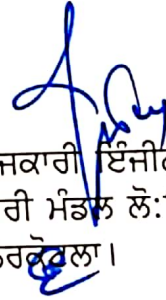 ਜਕਾਰੀ ਇੰਜੀਨ
ਰੀ ਮੰਡਲ ਲੋ:
ਰਕੋਟਲਾ।